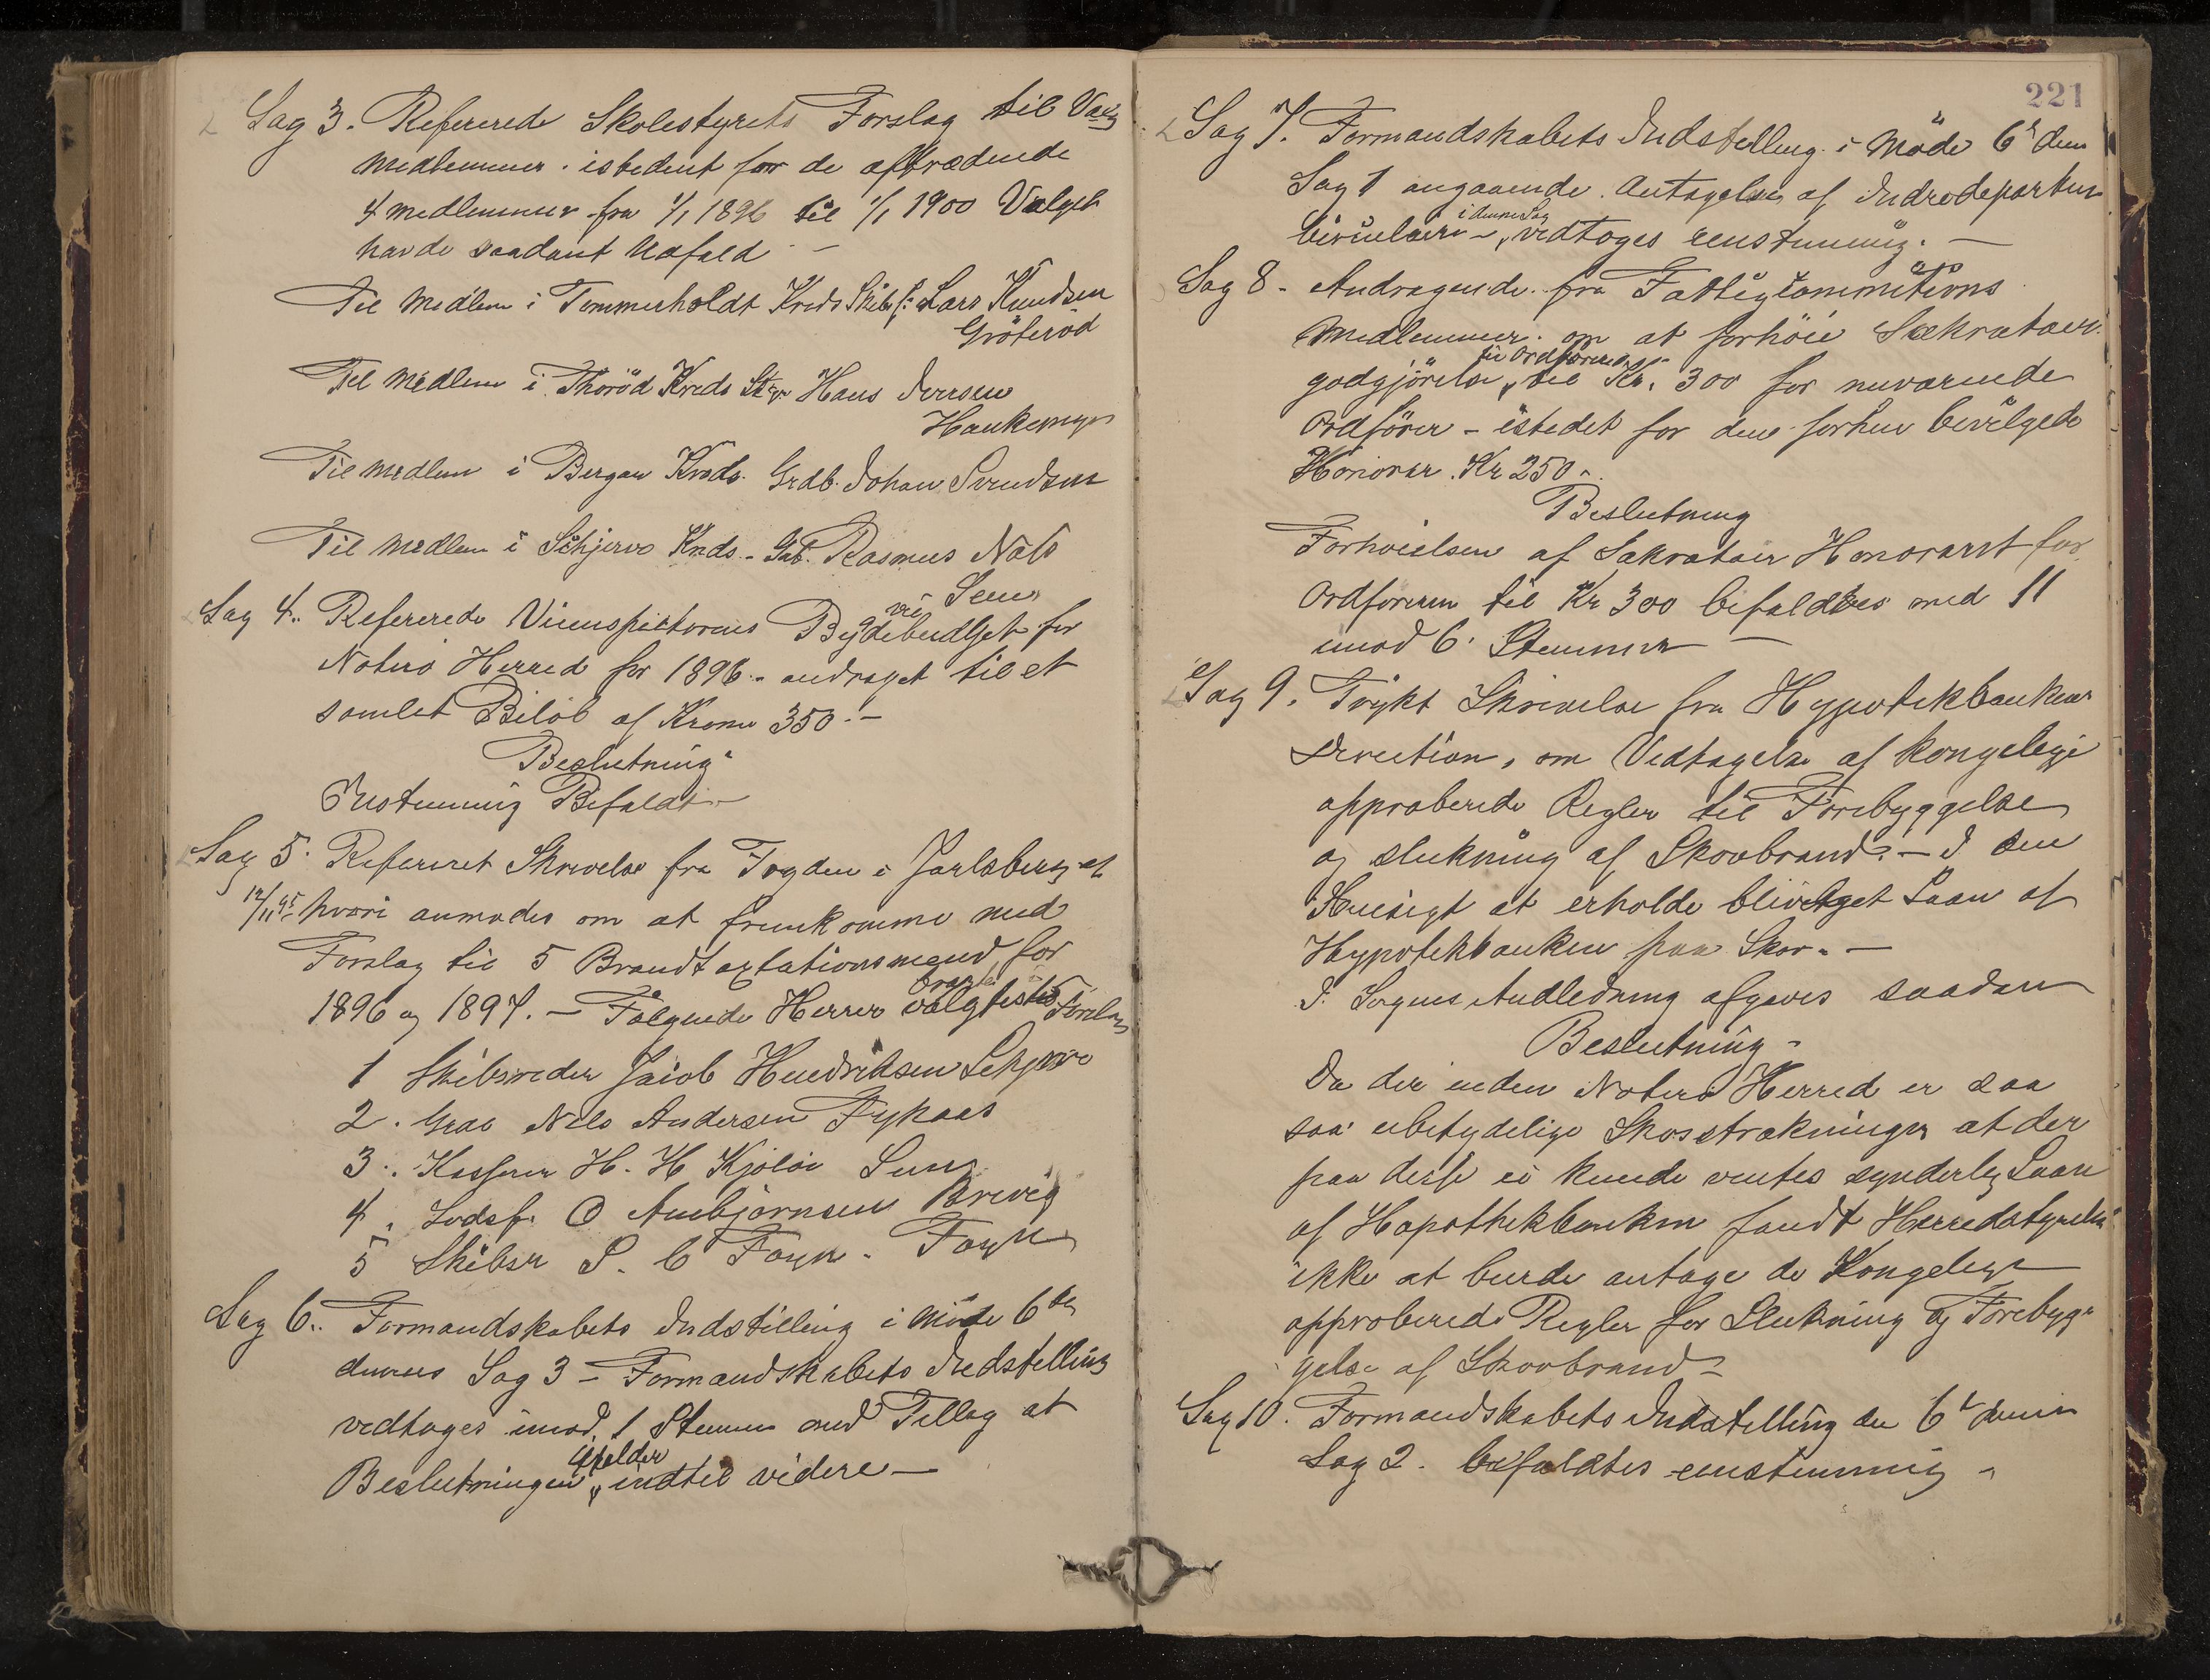 Sag 3. Refererede Skolestyrets Forslag til Valg
Medlemmer istedent for de aftrædende
4 medlemmer fra 1/1 1896 til 1/1 1900 Valget
havde saadant Udfald —
Til Medlem i Tømmerholdt Kreds Skibsf: Lars Knudsen
Gröteröd
Til Medlem i Thoröd Kreds Hans Iversen
Haukemyr
Til Medlem i Bergan Kreds. Grdb. Johan Svendsen
Til Medlem i Schjervo Kreds. Gb. Rasmus Nøts
Sem
Sag 4. Refererede Vicenspectorens Bygdebudget for
Noterø Herred for 1896. andraget til et
samlet Beløb af Kroner 350.—
Beslutning
Enstemmig Bifaldt —
Sag 5. Refereret Skrivelse fra Fogden i Jarlsberg af
12/11 95 hvori anmodes om at fremkomme med
Forslag til 5 Brandtaxtationsmænd for
1896 og 1897. — Følgende Herrer valgtes til Foreslag
1 Skibsreder Jacob Hendriksen Schjervo
2. Grdb Nils Andersen Fykaas
3. Kasserer H. H Kjöløi Sem
4. Lodsf. O Ambjörnsen Brevig
5 Skibsr S. C Foyn. Foyn
Sag 6. Formandskabets Indstilling i Möde 6te
dennes Sag 3 — Formandskabets Indstilling
vedtages imod 1 Stemme med Tillæg at
gjelder
Beslutningen indtil videre —
221
Sag 7. Formandskabets Indstelling i Möde 6t den
Sag 1 angaaende Antagelse af Indredepartem
i denne Sag
Circulære — vedtoges eenstemmig. —
Sag 8. Andragende fra Fattigcommitions
Medlemmer om at forhöie Sækretær
til Ordföreren
godgjörelse til Kr. 300 for nuværende
Ordförer — istedet for den forhen bevilgede
Honorar. Kr 250.
Beslutning
Forhøielsen af Sækretær Honoraret for
Ordføreren til Kr 300 bifaldtes med 11
imod 6 Stemmer —
Sag 9. Trykt Skrivelse fra Hypotekbankens
Direction, om Vedtagelse af Kongelige
approberede Regler til Forebyggelse
og slukning af Skovbrand. — I den
Hensigt at erholde bevilget Laan af
Hypotekbanken paa Skov. —
I Sagens Andledning afgaves saadan
Beslutning
Da der inden Noterø Herred er saa
saa ubetydelige Skovstrækninger at der
paa disse ei kunde ventes synderlig Laan
af Hapothekbanken fandt Herredstyrelsen
ikke at burde antage de Kongelige
approberede Regler for Slukning og Forebyg-
gelse af Skovbrand
Sag 10. Formandskabets Indstilling den 6te dennes
Sag 2. bifaldtes enstemmig